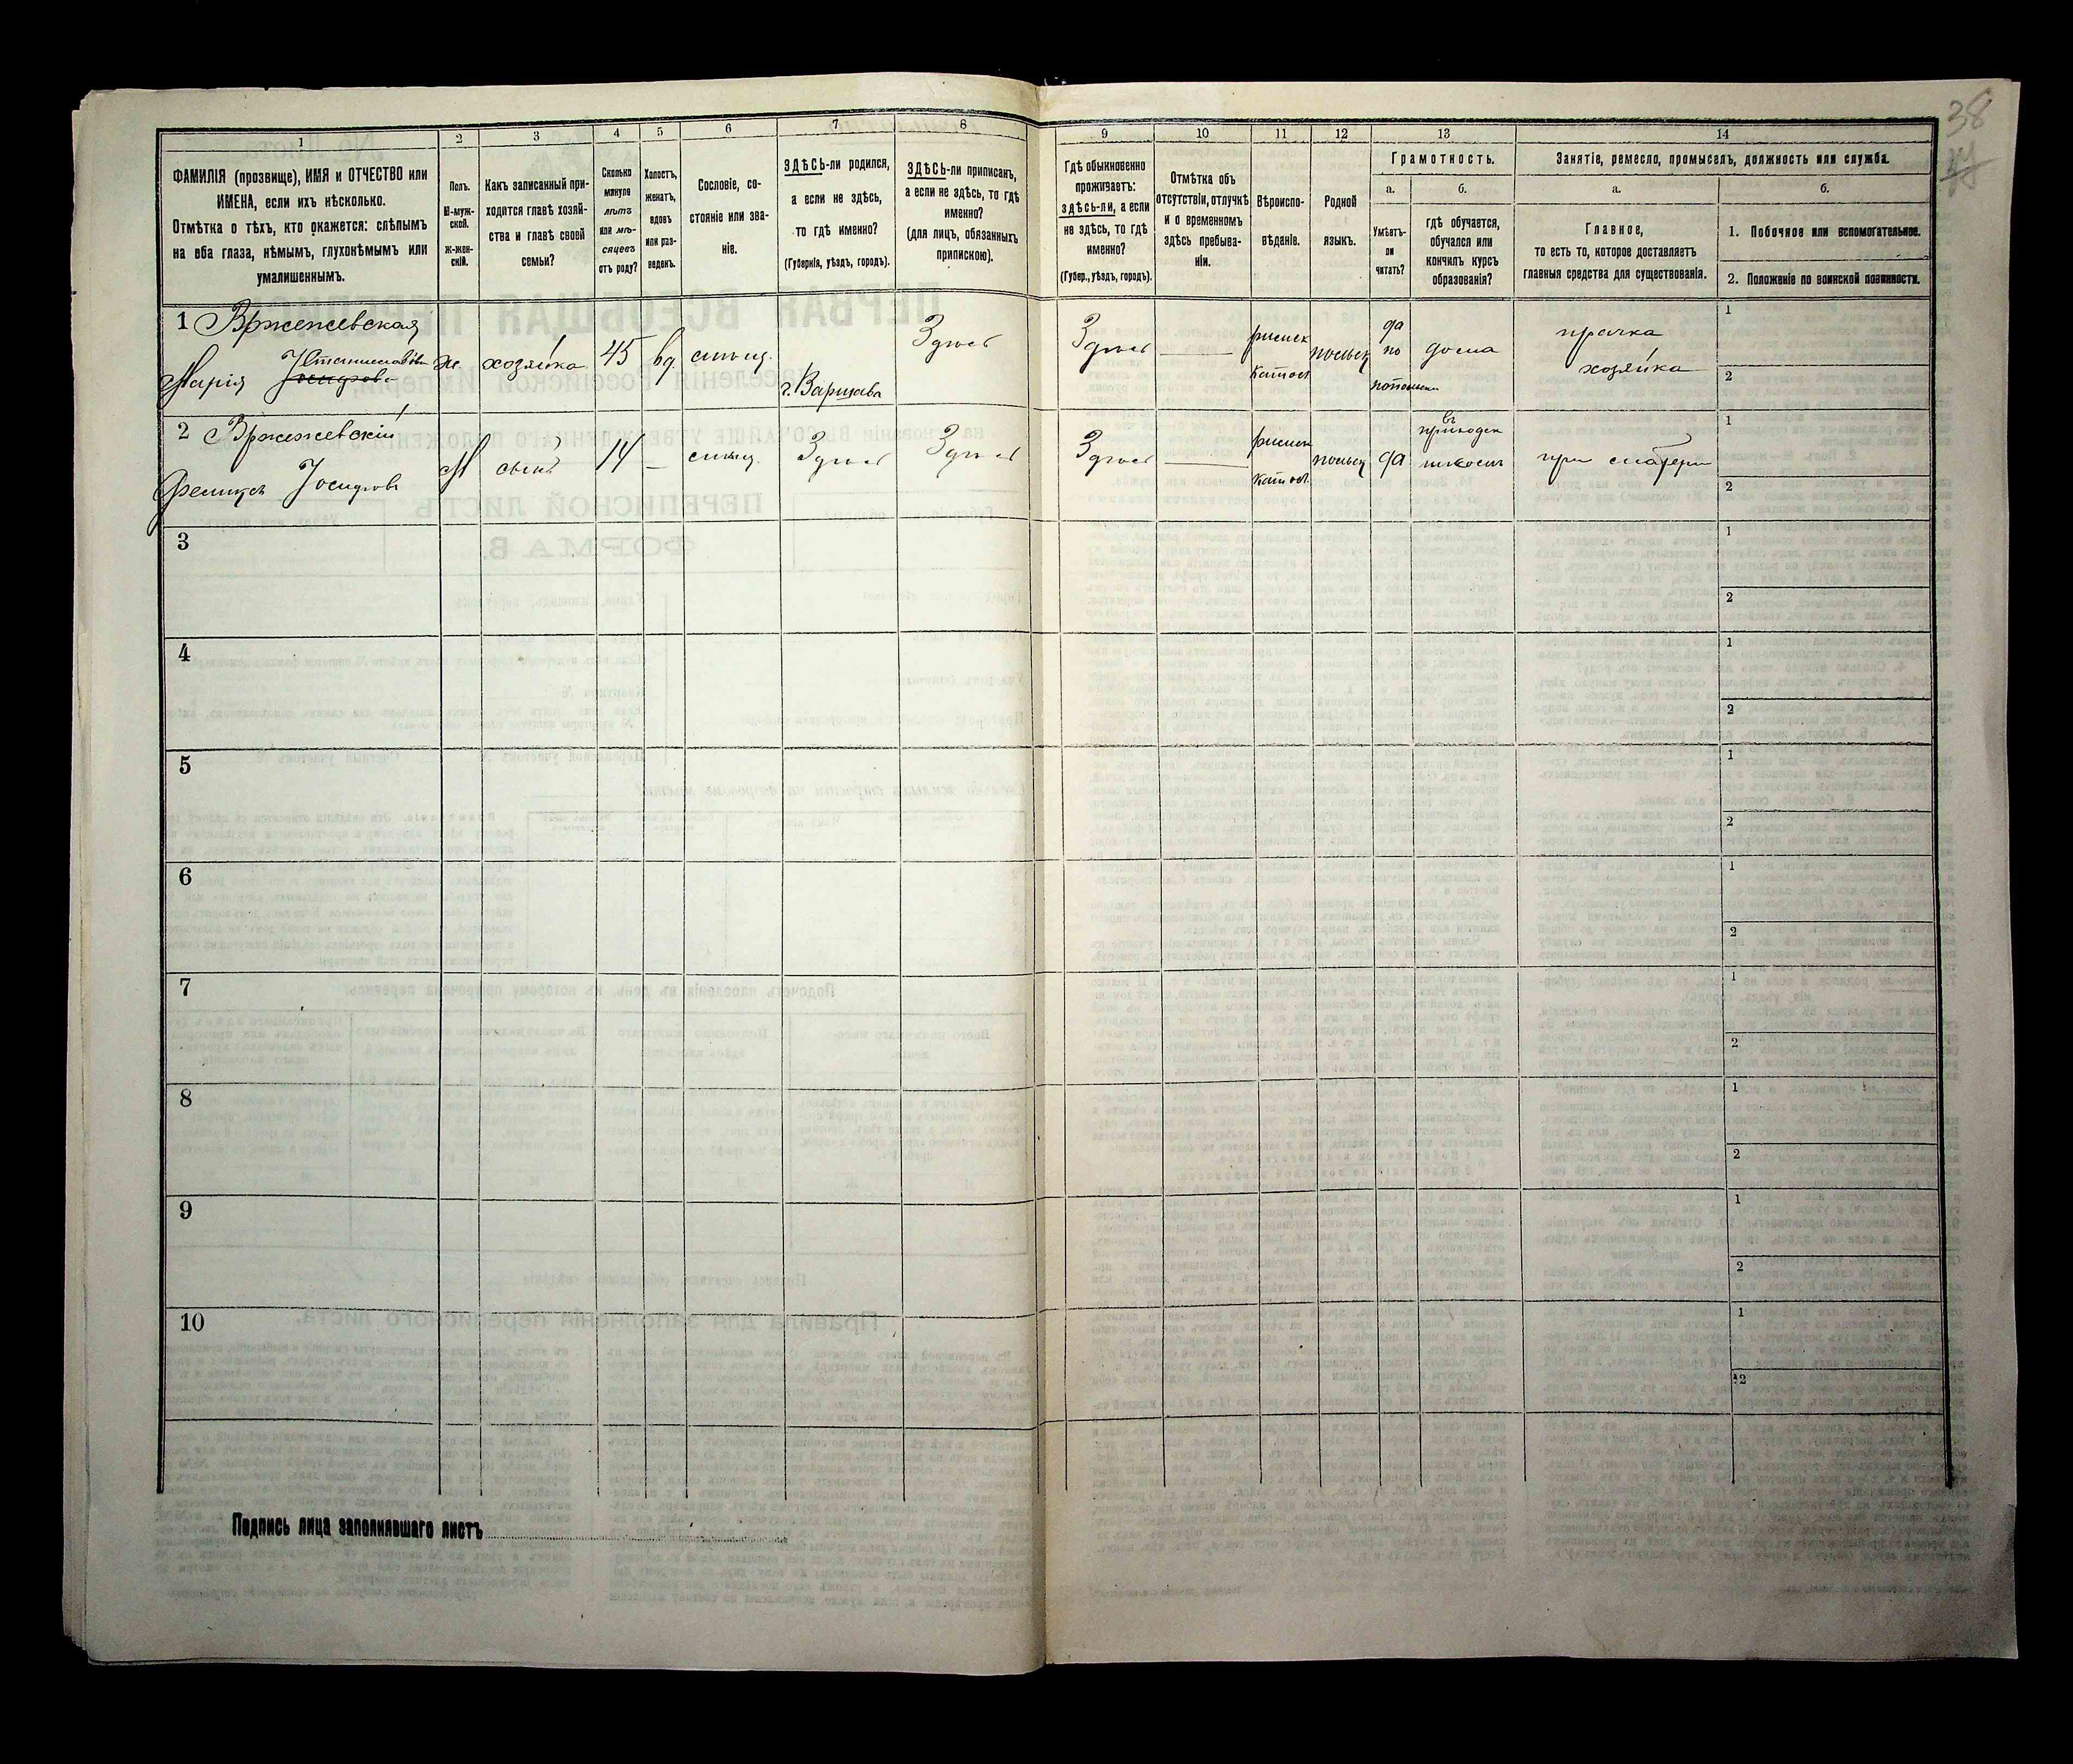 38
1
2
3
4
5
6
7
8
9
10
11
12
13
14
ФАМИЛІЯ (прозвище), ИМЯ и ОТЧЕСТВО или
ИМЕНА, если ихъ нѣсколько.
Отмѣтка о тѣхъ, кто окажется: слѣпымъ
на оба глаза, нѣмымъ, глухонѣмымъ или
умалишеннымъ.
Полъ.
М-муж-
ской.
Ж-жен-
скій.
Какъ записанный при-
ходится главѣ хозяй-
ства и главѣ своей
семьи?
Сколько
минуло
лѣтъ
или мѣ-
сяцевъ
отъ роду?
Холостъ,
женатъ,
вдовъ
или раз-
веденъ.
Сословіе, со-
стояніе или зва-
ніе.
ЗДѢСЬ-ли родился,
а если не здѣсь,
то гдѣ именно?
(Губернія, уѣздъ, городъ).
ЗДѢСЬ-ли приписанъ,
а если не здѣсь, то гдѣ
именно?
(для лицъ, обязанныхъ
припискою).
Гдѣ обыкновенно
проживаетъ:
здѣсь-ли, а если
не здѣсь, то гдѣ
именно?
(Губер., уѣздъ, городъ).
Отмѣтка объ
отсутствіи, отлучкѣ
и о временномъ
здѣсь пребыва-
ніи.
Вѣроиспо-
вѣданіе.
Родной
языкъ.
Грамотность.
а.
Умѣетъ-
ли
читать?
б.
гдѣ обучается,
обучался или
кончилъ курсъ
образованія?
Занятіе, ремесло, промыселъ, должность или служба.
а.
Главное,
то есть то, которое доставляетъ
главныя средства для существованія.
б.
1. Побочное или вспомогательное.
2. Положеніе по воинской повинности.
1 Вржежевская
Марія Станиславова
Іосифова
ж.
хозяйка
45
вд.
г. Варшава
Здѣсь
Здѣсь
римск
катол
польск
да
по
польски
дома
прачка
хозяйка
1
2
2 Вржежевскій
Феликсъ Іосифовъ
М
сынъ
14
Здѣсь
Здѣсь
Здѣсь
римск
катол
польск
да
въ
приходск
школѣ
при матери
1
2
3
1
2
4
1
2
5
1
2
6
1
2
7
1
2
8
1
2
9
1
2
10
1
2
Подпись лица заполнявшаго листъ